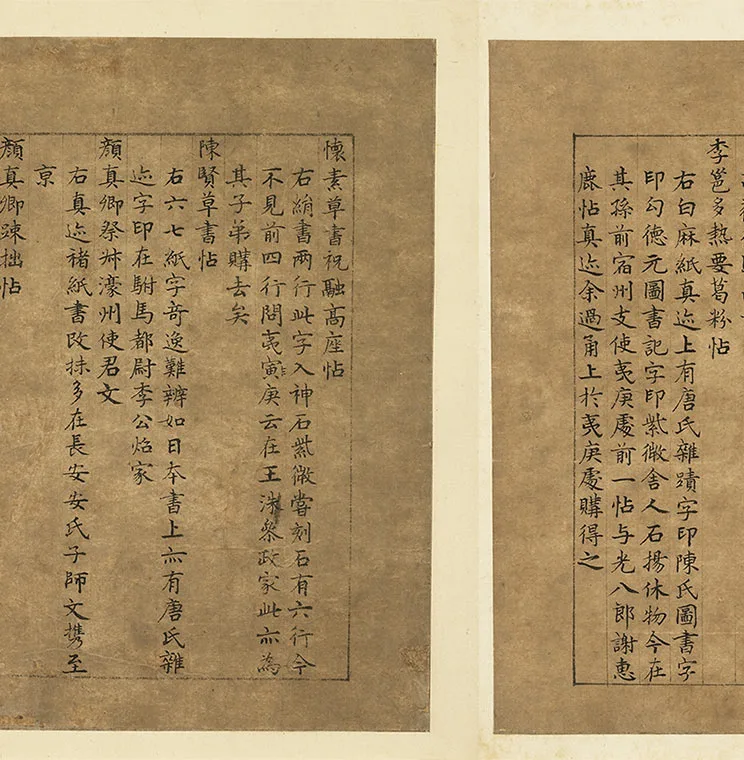 李邕多熱要葛粉帖
右白麻紙真迹上有唐氏雜蹟字印陳氏圖書字
印勾德元圖書記字印紫微舍人石揚休物今在
其孫前宿州支使夷庚處前一帖与光八郎謝惠
鹿帖真迹余過甬上於夷庚處購得之
懷素草書祝融高座帖
右絹書兩行此字入神石紫微嘗刻石有六行今
不見前四行問夷寅庚云在王洙參政家此亦為
其子弟購去矣
陳賢草書帖
右六七紙字奇逸難辨如日本書上亦有唐氏雜
迹字印在駙馬都尉李公炤家
顏真卿祭叔濠州使君文
右真迹褚紙書改抹多在長安安氏子師文携至
京
顏真卿疎拙帖